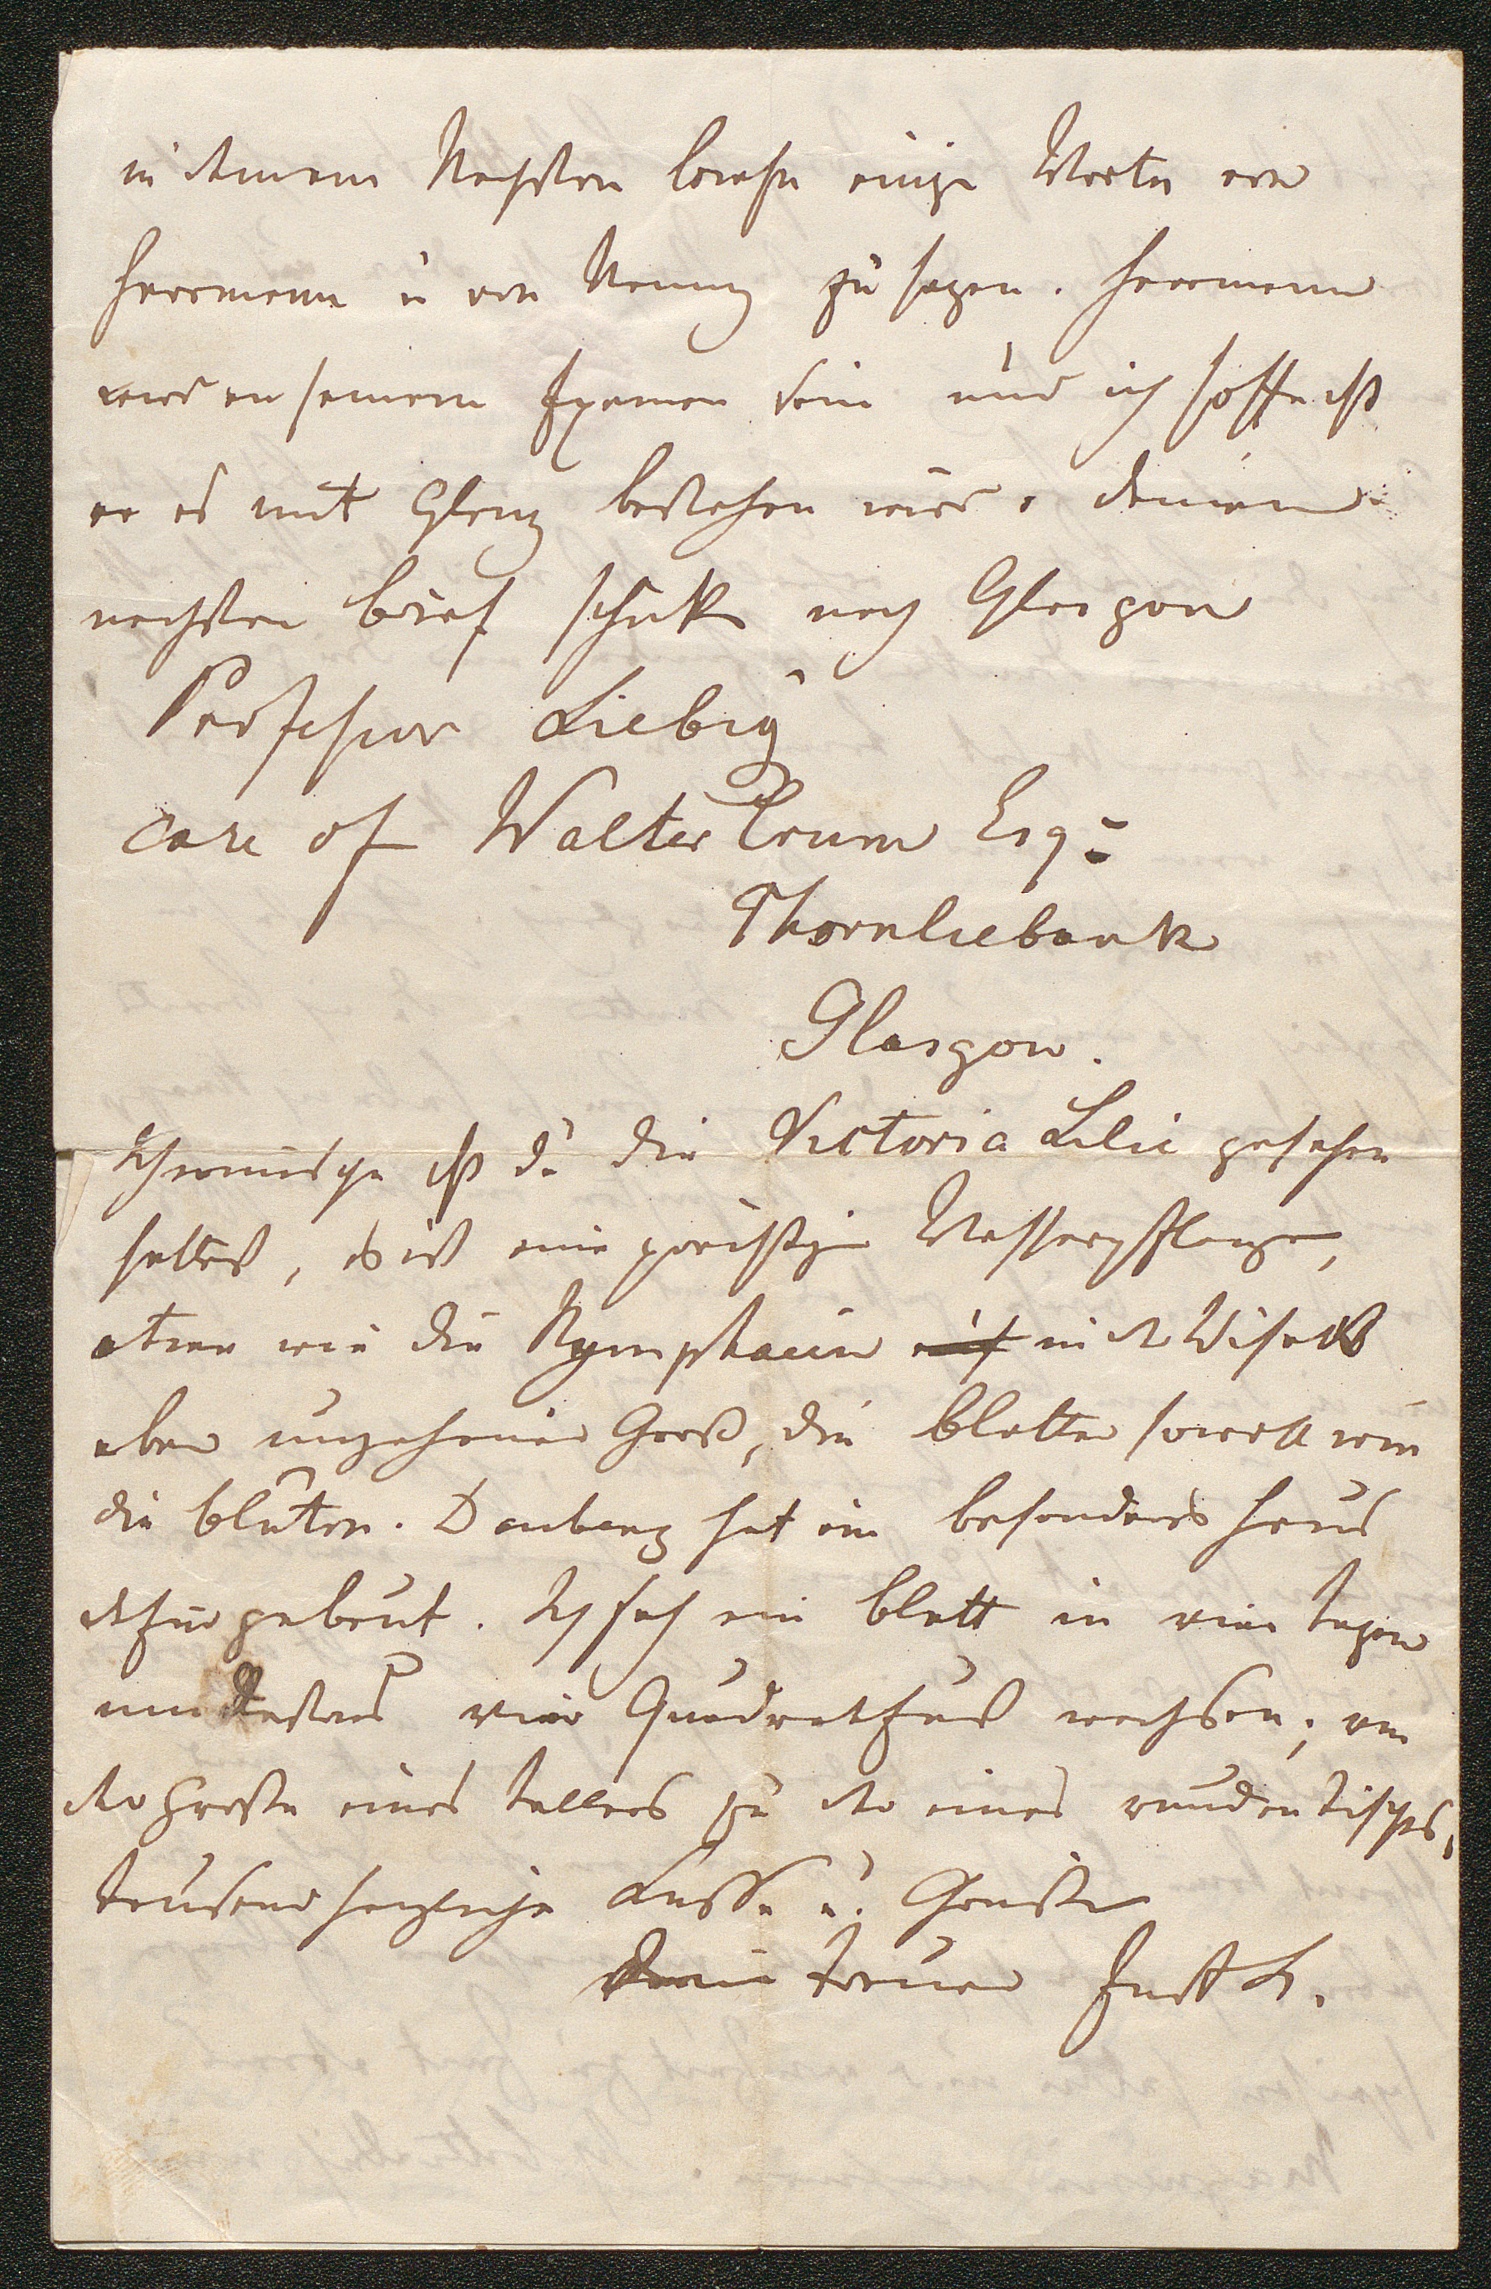 in deinem Nachsten briefe einige Worte von
Herrmann u von Nanny zu sagen. Herrmann
wird an seinem Examen sein und ich hoffe daß
er es mit Glanz bestehen wird. Deinen
nachsten brief schicke nach Glasgow
Professor Liebig
care of Walter Crum Esqr
Thornliebank
Glasgow.
Ich wünschte daß du die Victoria Lilie gesehen
hättest, es ist eine prächtige Wasserpflanze,
etwa wie die Nymphaeen auf in der Wiseck
aber ungeheuer Groß, die blatter sowohl wie
die blüten. Daubeny hat ein besonderes Haus
dafür gebaut. Ich sah ein blatt in vier tagen
um mindestens vier Quadratfuß wachsen; von
der große eines tellers zu der eines runden tisches.
tausend herzliche Kusse u. Gruße
Dein treuer Just L.